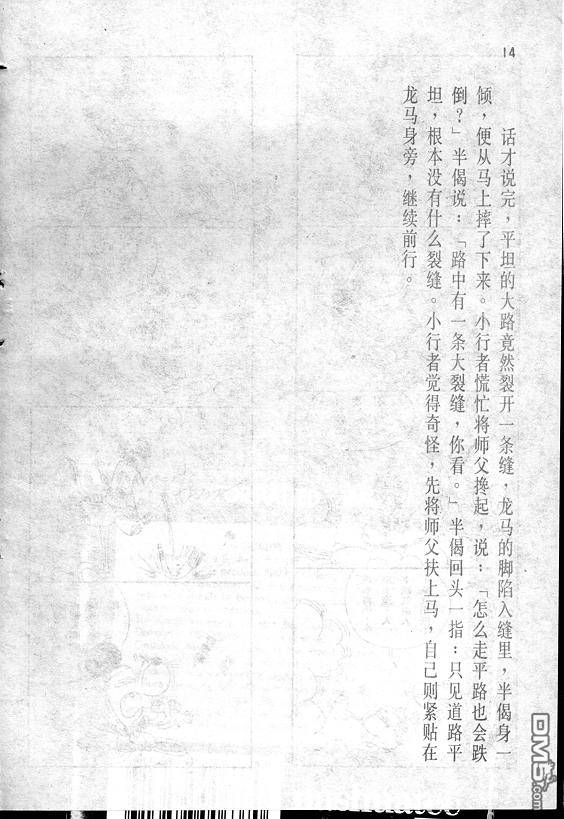 14
话才说完，平坦的大路竟然裂开一条缝，龙马的脚陷入缝里，半偈身一
倾，便从马上摔了下来。小行者慌忙将师父搀起，说：「怎么走平路也会跌
倒？」半偈说：「路中有一条大裂缝，你看。」半偈回头一指：只见道路平
坦，根本没有什么裂缝。小行者觉得奇怪，先将师父扶上马，自己则紧贴在
龙马身旁，继续前行。
DM5.com